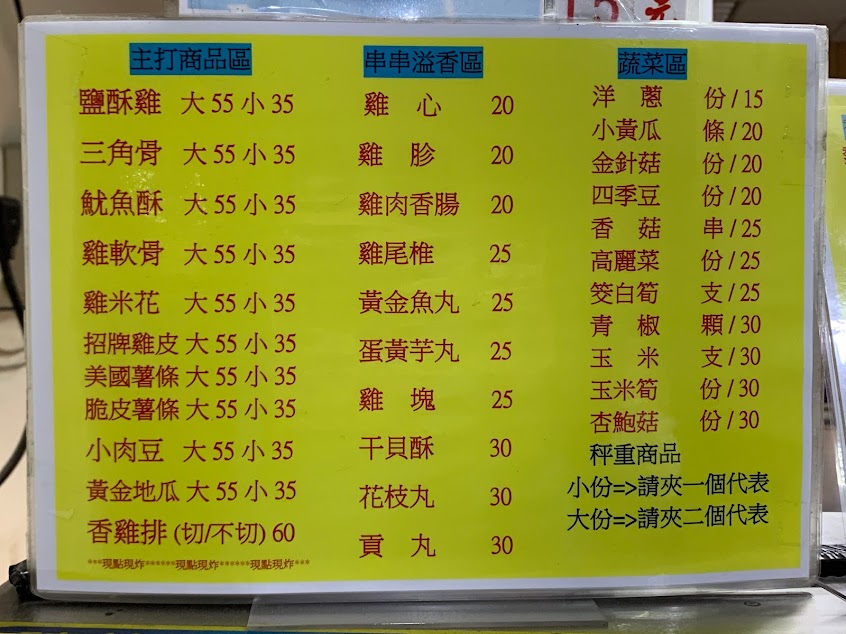 15元
主打商品區
鹽酥雞 大 55 小 35
三角骨 大 55 小 35
魷魚酥 大 55 小 35
雞軟骨 大 55 小 35
雞米花 大 55 小 35
招牌雞皮 大 55 小 35
美國薯條 大 55 小 35
脆皮薯條 大 55 小 35
小肉豆 大 55 小 35
黃金地瓜 大 55 小 35
香雞排 (切/不切) 60
***現點現炸******現點現炸******現點現炸***
串串溢香區
雞 心 20
雞 胗 20
雞肉香腸 20
雞尾椎 25
黃金魚丸 25
蛋黃芋丸 25
雞 塊 25
干貝酥 30
花枝丸 30
貢 丸 30
蔬菜區
洋 蔥 份 / 15
小黃瓜 條 / 20
金針菇 份 / 20
四季豆 份 / 20
香 菇 串 / 25
高麗菜 份 / 25
筊白筍 支 / 25
青 椒 顆 / 30
玉 米 支 / 30
玉米筍 份 / 30
杏鮑菇 份 / 30
秤重商品
小份=>請夾一個代表
大份=>請夾二個代表